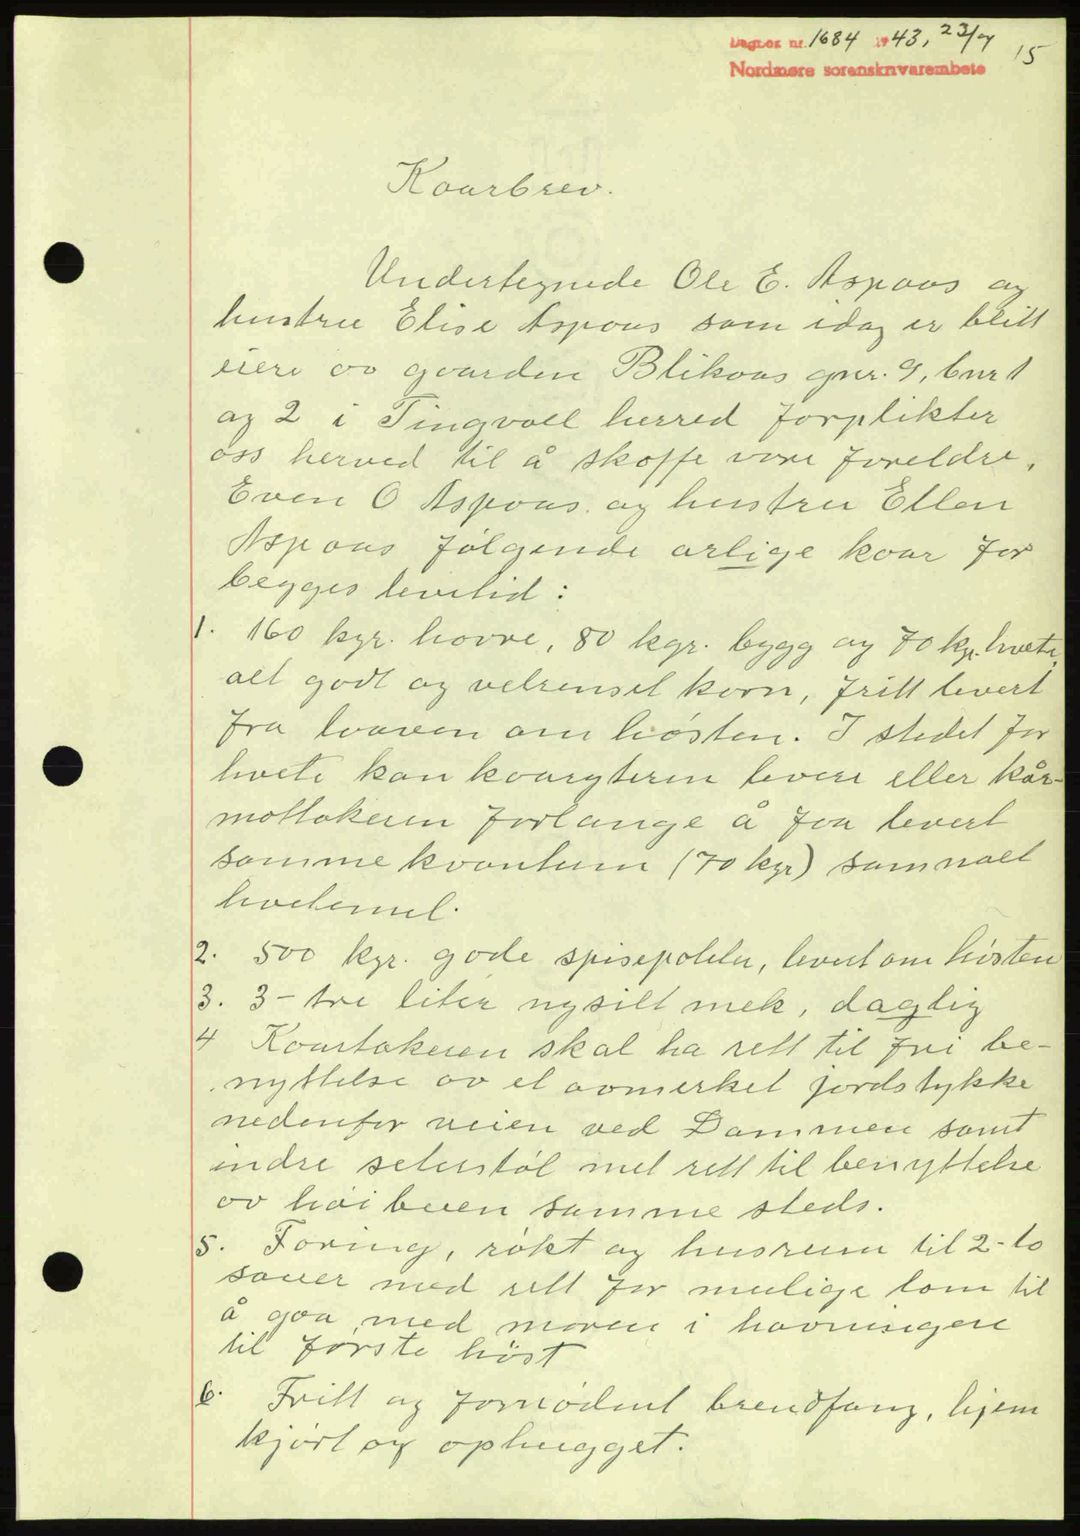 Dagbok nr. 1684 1943, 23/7
15
Nordmøre sorenskrivarembete
Kaarbrev.
Undertegnede Ole E. Aspaas og
hustru Elise Aspaas som idag er blitt
eiere av gaarden Blikaas gnr. 9, bnr 1
og 2 i Tingvoll herred forplikter
oss herved til å skaffe vore foreldre,
Even O Aspaas og hustru Ellen
Aspaas følgende arlige kaar for
begges levetid:
1. 160 kgr. havre, 80 kgr. bygg og 70 kg. hvete,
alt godt og velrenset korn, fritt levert
fra laaven om høsten. I stedet for
hvete kan kaaryteren levere eller kår-
mottakeren forlange å faa levert
samme kvantum (70 kgr) sammalt
hvetemel.
2. 500 kgr. gode spisepoteter, levert om høsten
3. 3 - tre liter nysilt melk, daglig
4 Kaartakeren skal ha rett til fri be-
nyttelse av et avmerket jordstykke
nedenfor veien ved Dammen samt
indre seterstøl met rett til benyttelse
av høibuen samme steds.
5. Foring, røkt og husrum til 2 - to
sauer med rett for mulige lam til
å gaa med moren i havningen
til første høst
6. Fritt og fornødent brendfang, hjem
kjørt og ophugget.